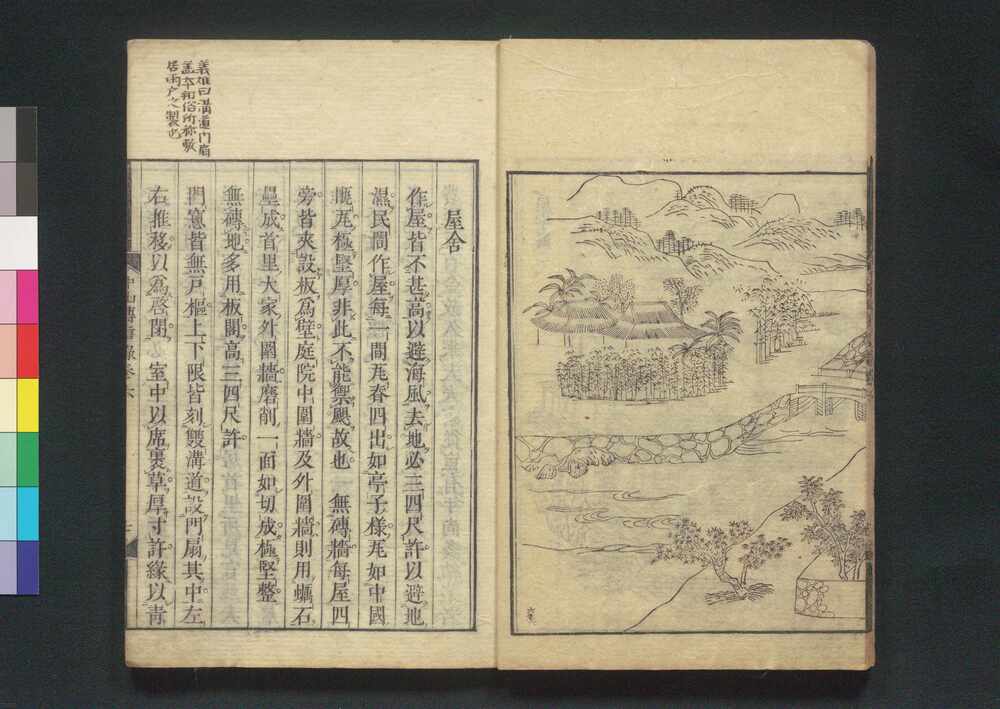 屋舍
作屋皆不甚高以避海風去地必三四尺許以避地
濕民間作屋每一間瓦脊四出如亭子樣瓦如中國
甋瓦極堅厚非此不能禦颶故也　無磚牆每屋四
旁皆夾設板爲壁庭院中圍牆及外圍牆則用蠣石
壘成首里大家外圍牆磨削一面如切成極堅整
無磚地多用板閣高三四尺許
門窻皆無戸樞上下限皆刻雙溝道設門扇其中左
右推移以爲啓閉　室中以席裹草厚寸許緣以靑
義雄曰溝道門扇
盖本和俗所稱敷
居雨戸之製也
中山傳信錄卷六